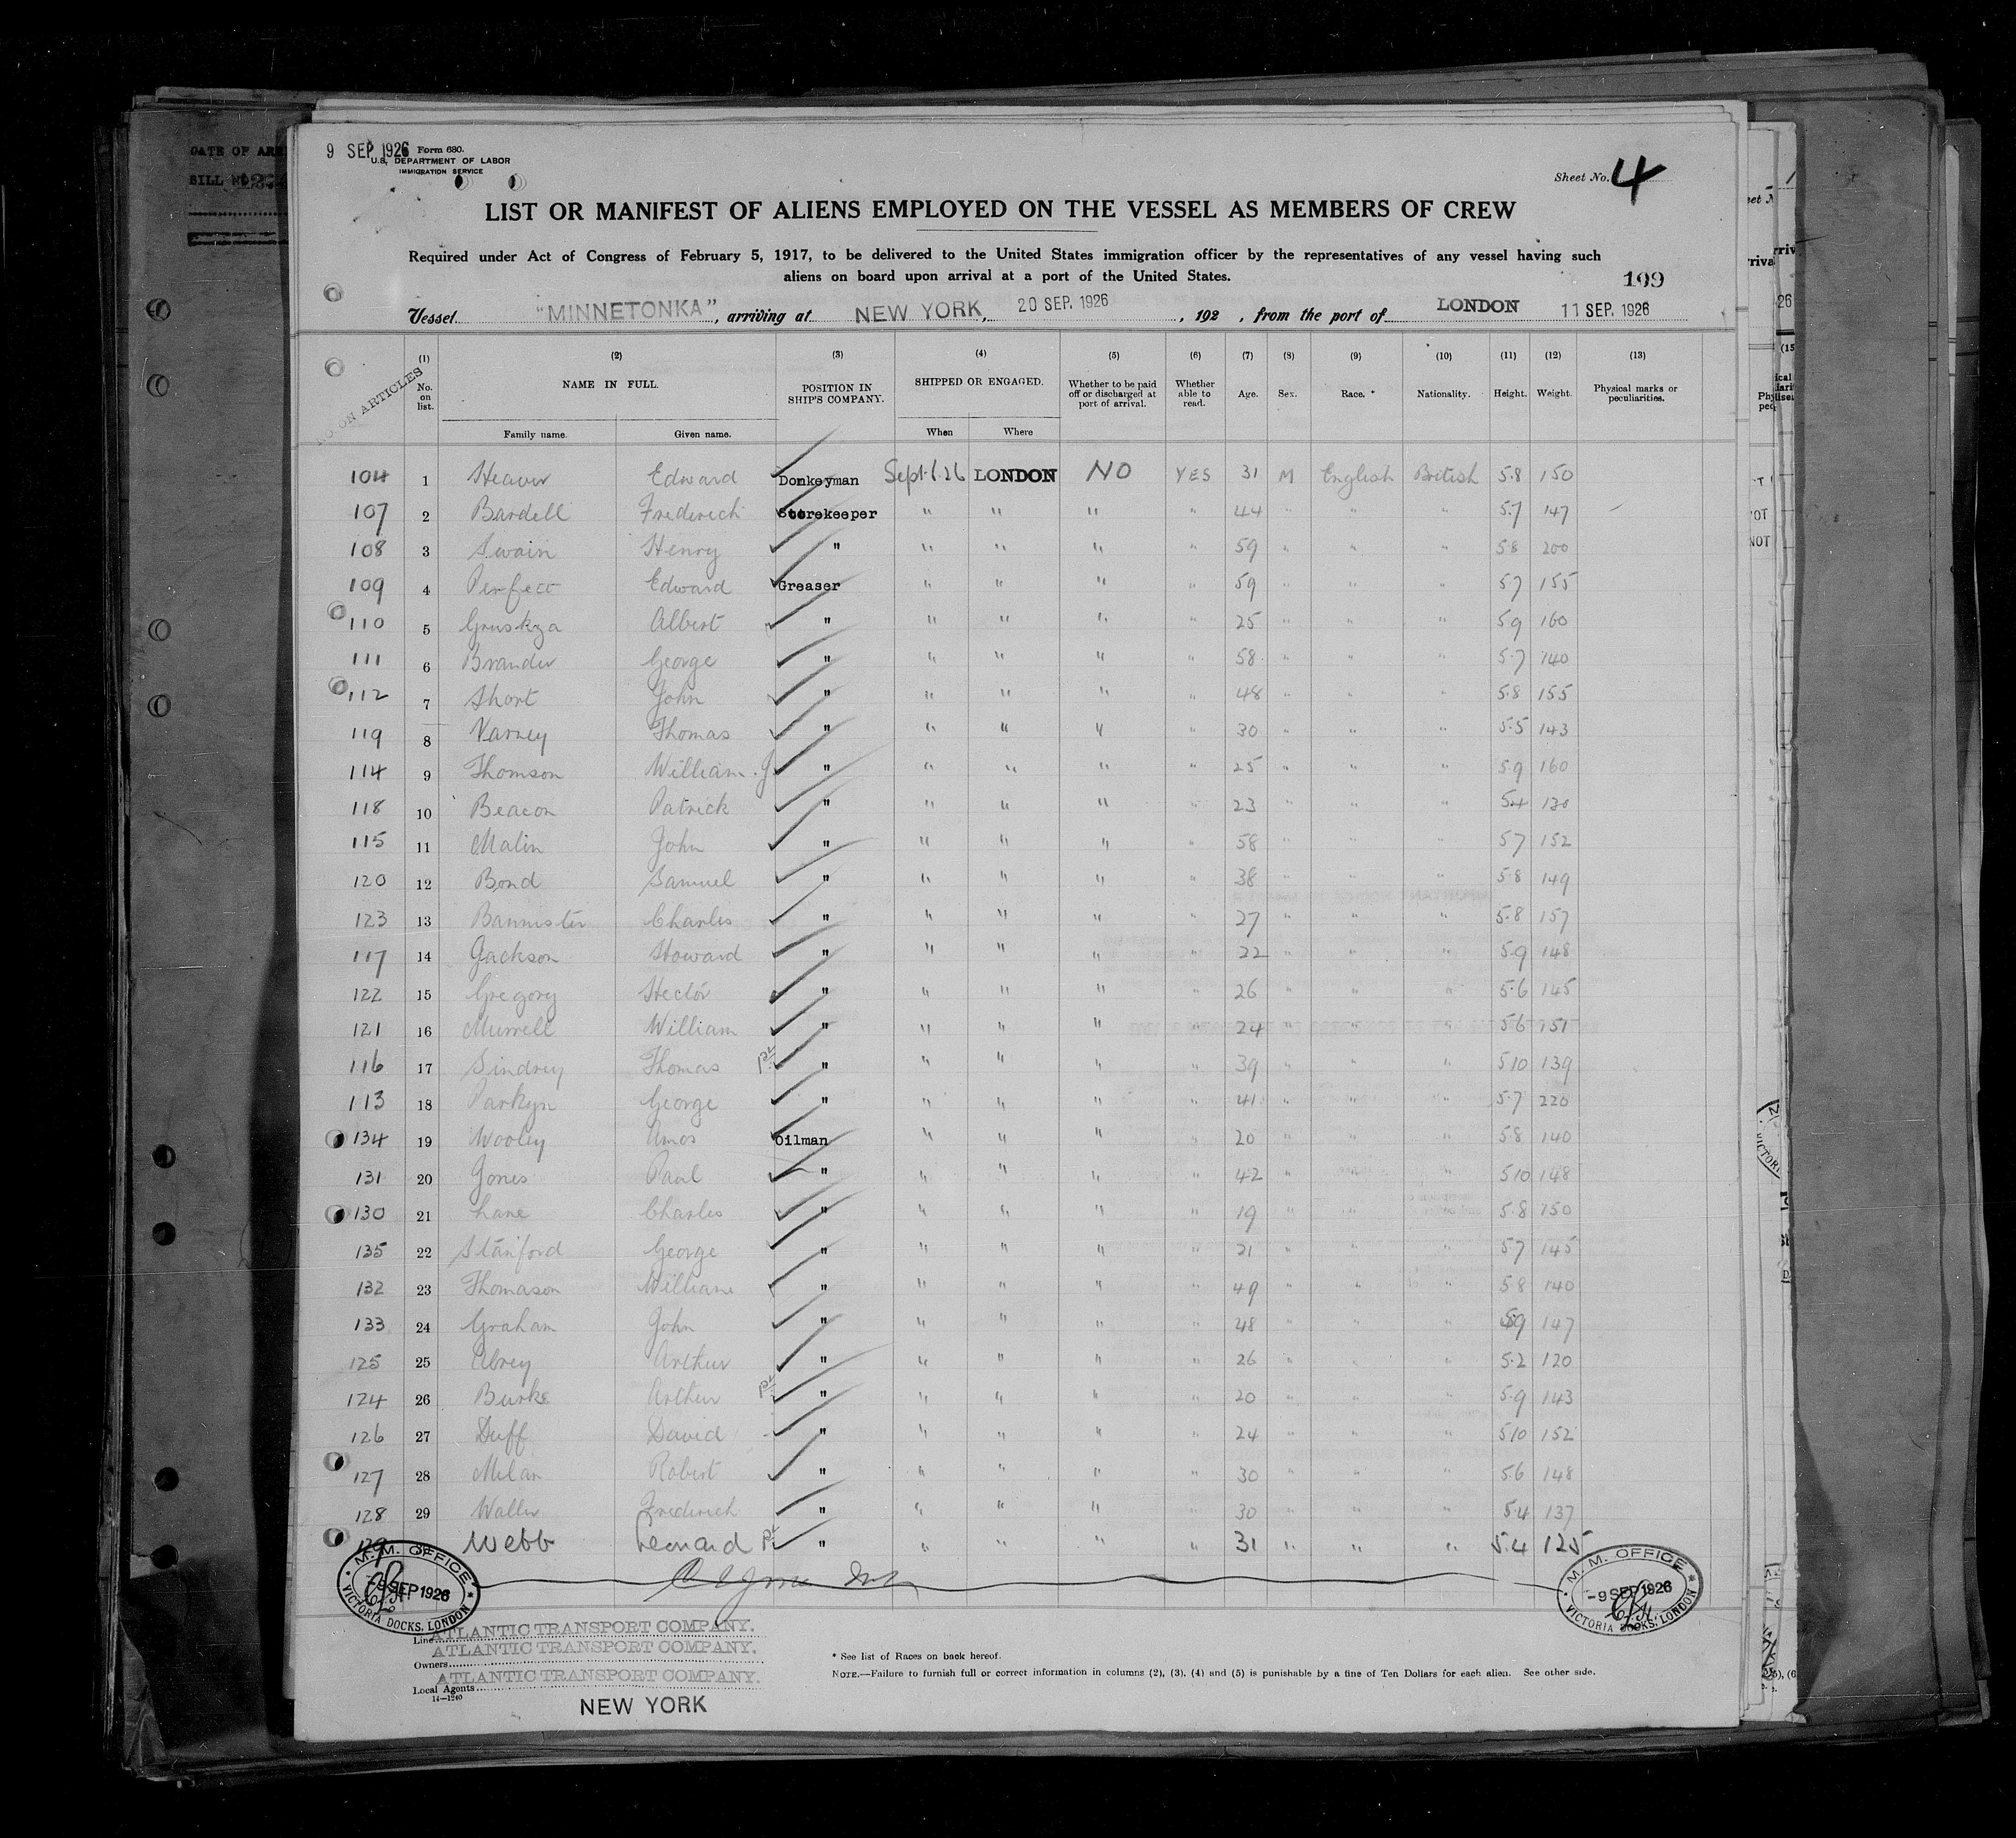 DATE OF
BILL NO
9 SEP 1926 Form 680.
U.S. DEPARTMENT OF LABOR
IMMIGRATION SERVICE
Sheet No. 4
LIST OR MANIFEST OF ALIENS EMPLOYED ON THE VESSEL AS MEMBERS OF CREW
Required under Act of Congress of February 5, 1917, to be delivered to the United States immigration officer by the representatives of any vessel having such
aliens on board upon arrival at a port of the United States.
109
Vessel "MINNETONKA", arriving at NEW YORK, 20 SEP. 1926, 192 , from the port of LONDON 11 SEP. 1926
NO. ON ARTICLES
(1) (2) (3) (4) (5) (6) (7) (8) (9) (10) (11) (12) (13)
No. on list. NAME IN FULL. POSITION IN SHIP'S COMPANY. SHIPPED OR ENGAGED. Whether to be paid off or discharged at port of arrival. Whether able to read. Age. Sex. Race. * Nationality. Height. Weight. Physical marks or peculiarities.
Family name. Given name. When Where
104 1 Heaver Edward Donkeyman Sept. 6. 26 LONDON NO YES 31 M English British 5.8 150
107 2 Bardell Frederich Storekeeper " " " " 44 " " " 5.7 147
108 3 Swain Henry " " " " " 59 " " " 5.8 200
109 4 Perfect Edward Greaser " " " " 59 " " " 5.7 155
110 5 Gruskza Albert " " " " " 25 " " " 5.9 160
111 6 Brander George " " " " " 58 " " " 5.7 140
112 7 Short John " " " " " 48 " " " 5.8 155
119 8 Varney Thomas " " " " " 30 " " " 5.5 143
114 9 Thomson William. J " " " " " 25 " " " 5.9 160
118 10 Beacon Patrick " " " " " 23 " " " 5.4 130
115 11 Malin John " " " " " 58 " " " 5.7 152
120 12 Bond Samuel " " " " " 38 " " " 5.8 149
123 13 Bannister Charles " " " " " 27 " " " 5.8 157
117 14 Jackson Howard " " " " " 22 " " " 5.9 148
122 15 Gregory Hector " " " " " 26 " " " 5.6 145
121 16 Murrell William " " " " " 24 " " " 5.6 151
116 17 Sindrey Thomas " " " " " 39 " " " 5.10 139
113 18 Parkyn George " " " " " 41 " " " 5.7 220
134 19 Wooley Amos Oilman " " " " 20 " " " 5.8 140
131 20 Jones Paul " " " " " 42 " " " 5.10 148
130 21 Lane Charles " " " " " 19 " " " 5.8 150
135 22 Staniford George " " " " " 21 " " " 5.7 145
132 23 Thomason William " " " " " 49 " " " 5.8 140
133 24 Graham John " " " " " 48 " " " 5.9 147
125 25 Abrey Arthur " " " " " 26 " " " 5.2 120
124 26 Burke Arthur " " " " " 20 " " " 5.9 143
126 27 Duff David " " " " " 24 " " " 5.10 152
127 28 Milan Robert " " " " " 30 " " " 5.6 148
128 29 Waller Frederich " " " " " 30 " " " 5.4 137
129 30 Webb Leonard " " " " " 31 " " " 5.4 125
M. M. OFFICE
-9 SEP 1926
VICTORIA DOCKS, LONDON
M. M. OFFICE
-9 SEP 1926
VICTORIA DOCKS, LONDON
Line ATLANTIC TRANSPORT COMPANY.
Owners ATLANTIC TRANSPORT COMPANY.
Local Agents ATLANTIC TRANSPORT COMPANY.
14—1240
NEW YORK
* See list of Races on back hereof.
NOTE.—Failure to furnish full or correct information in columns (2), (3), (4) and (5) is punishable by a fine of Ten Dollars for each alien. See other side.